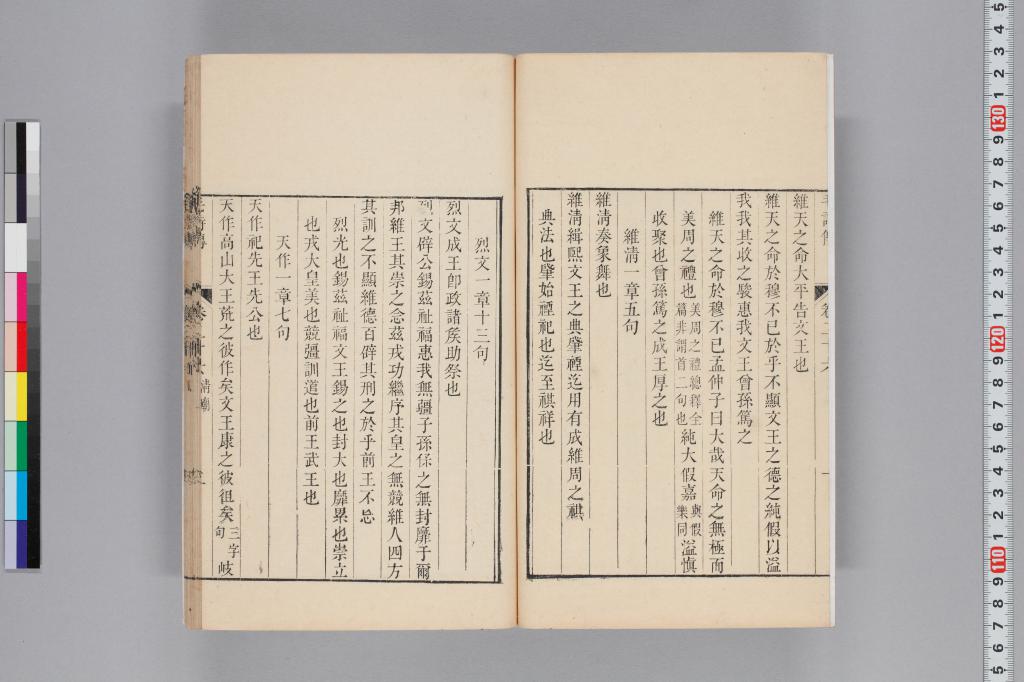 維天之命大平告文王也
維天之命於穆不已於乎不顯文王之德之純假以溢
我我其收之駿惠我文王曾孫篤之
維天之命於穆不已孟仲子曰大哉天命之無極而
美周之禮也美周之禮總釋全篇非謂首二句也純大假嘉與假樂同溢慎
收聚也曾孫篤之成王厚之也
維清一章五句
維清奏象舞也
維清緝熙文王之典肇禋迄用有成維周之祺
典法也肇始禋祀也迄至祺祥也
烈文一章十三句
烈文成王卽政諸矦助祭也
烈文辟公錫茲祉福惠我無疆子孫保之無封靡于爾
邦維王其崇之念茲戎功繼序其皇之無競維人四方
其訓之不顯維德百辟其刑之於乎前王不忘
烈光也錫茲祉福文王錫之也封大也靡纍也崇立
也戎大皇美也競彊訓道也前王武王也
天作一章七句
天作祀先王先公也
天作高山大王荒之彼作矣文王康之彼徂矣三字句岐